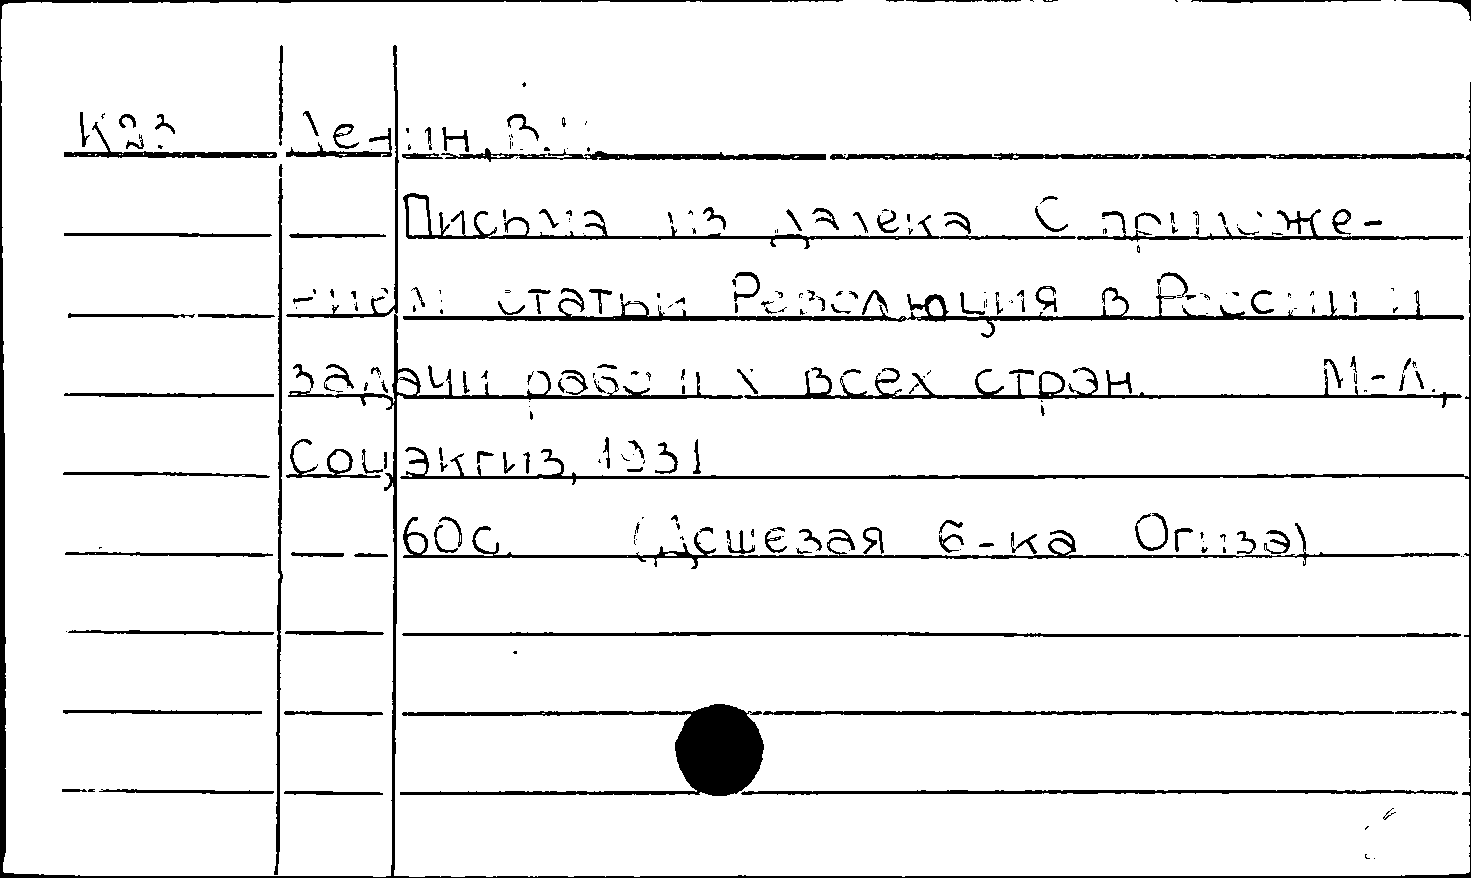 К23 Ленин, В.И.
Письма из далека С приложе-
нием статьи Революция в России и
задачи рабочих всех стран. М.-Л.,
Соцэкгиз, 1931
60с. (Дешевая б-ка Огиза).